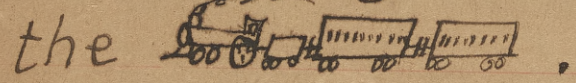 the .